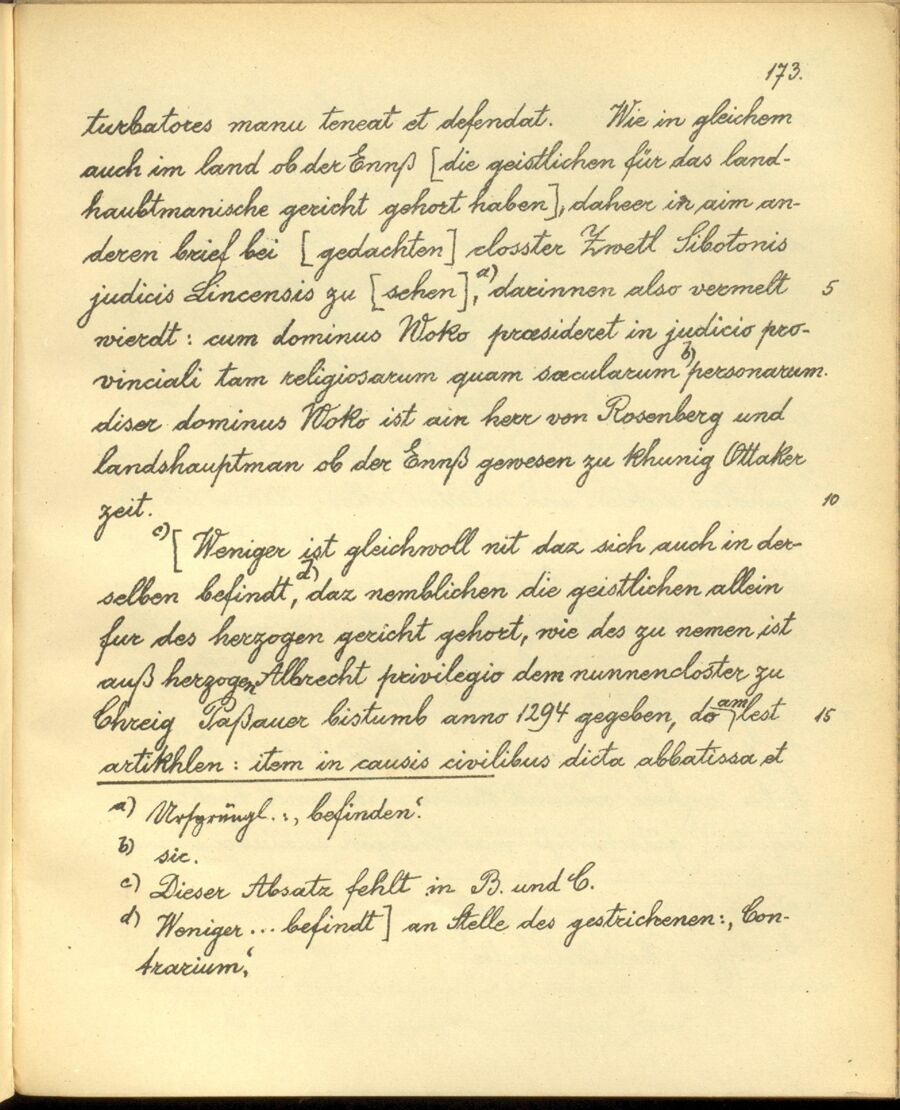 173.
turbatores manu teneat et defendat. Wie in gleichem
auch im land ob der Ennß [die geistlichen für das land-
haubtmanische gericht gehort haben], daheer in aim an-
deren brief bei [gedachten] closster Zwetl Sibotonis
judicis Lincensis zu [sehen],a) darinnen also vermelt 5
wierdt: cum dominus Woko præsideret in judicio pro-
vinciali tam religiosarum quam sæcularum b) personarum.
diser dominus Woko ist ain herr von Rosenberg und
landshauptman ob der Ennß gewesen zu khunig Ottaker
zeit. 10
c) [Weniger ist gleichwoll nit daz sich auch in der-
selben befindt,d) daz nemblichen die geistlichen allein
fur des herzogen gericht gehort, wie des zu nemen ist
auß herzogen Albrecht privilegio dem nunnencloster zu
Chreig Paßauer bistumb anno 1294 gegeben, do am lest 15
artikhlen: item in causis civilibus dicta abbatissa et
a) Ursprüngl.: „befinden“.
b) sic.
c) Dieser Absatz fehlt in B. und C.
d) Weniger... befindt] an Stelle des gestrichenen: „Con-
trarium“.